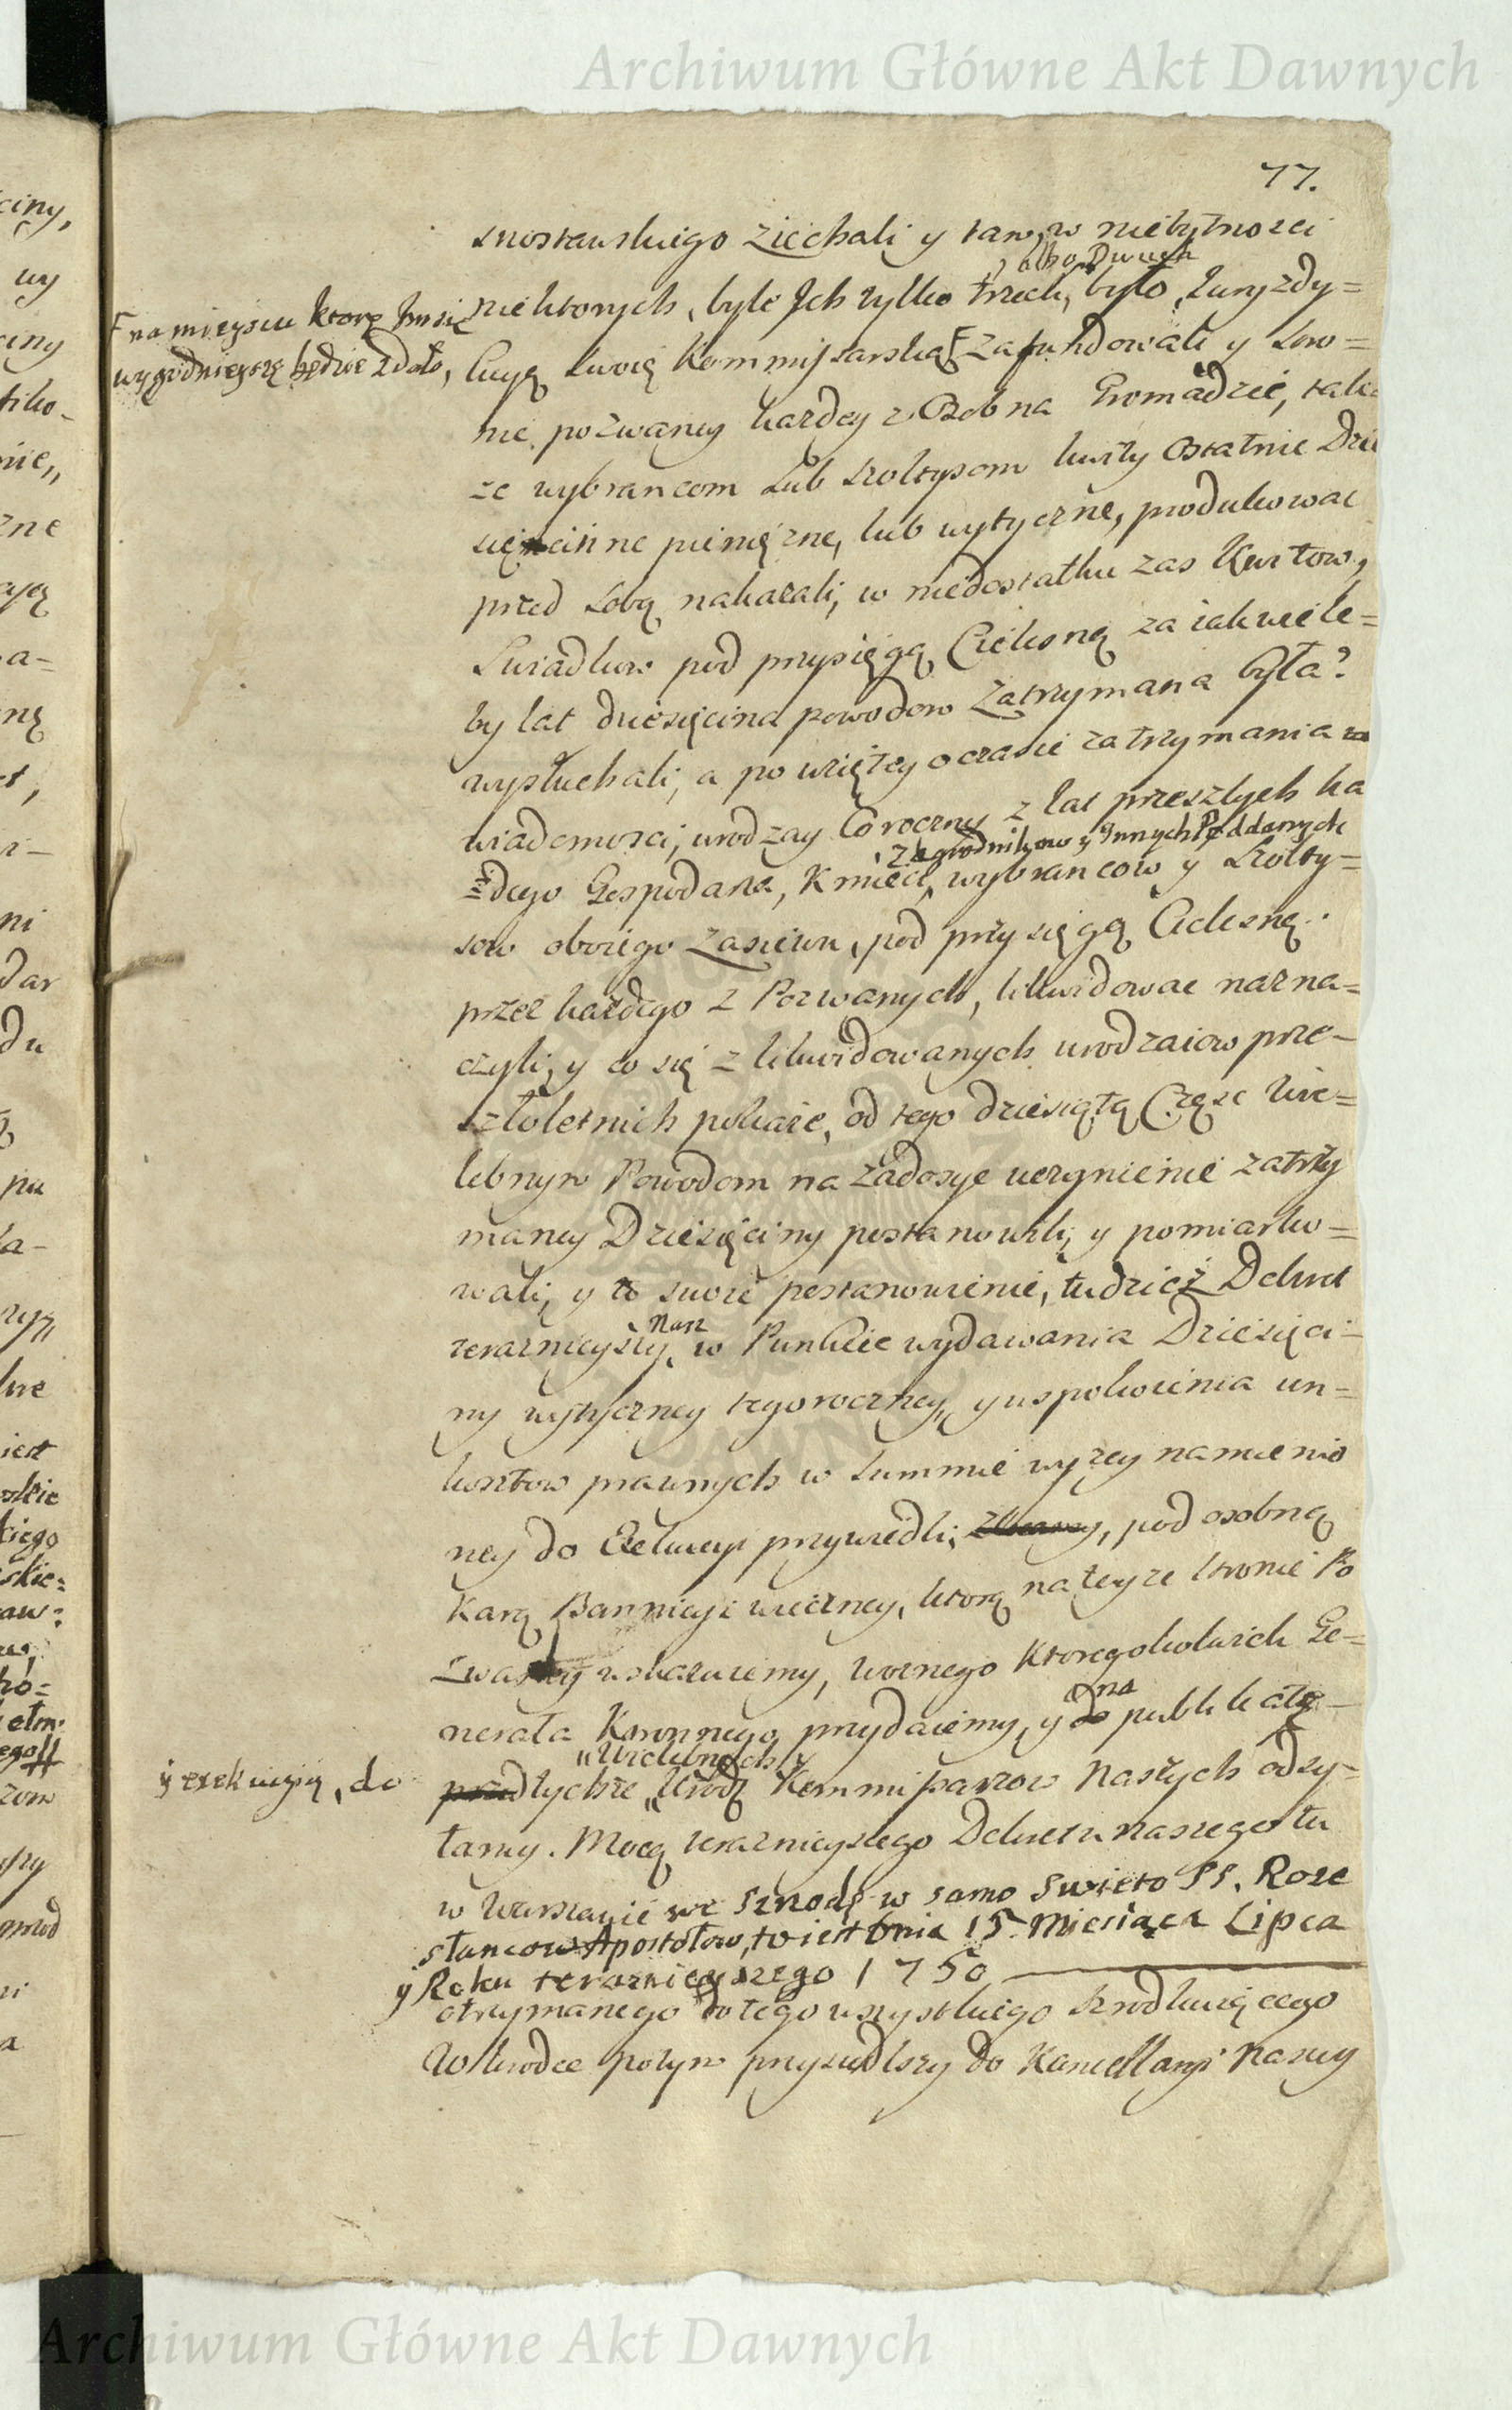 Archiwum Główne Akt Dawnych
77.
snostawskiego ziechali y tam, w niebytnosci
albo Dwuch
niektorych, byle Jch tylko trzech, było, Juryzdy=
F na mieyscu ktore Jm się
wygodnieysze będzie zdało,
kcyą swoię Kommissarską F zafundowali y stro=
nie pozwaney każdey z Osob na Gromadzie, takż
ze wybrancom lub szołtysom kwity ostatnie Dzie
sięcinne pieniężne, lub wytyczne, produkowac
przed sobą nakazali, w niedostatku zas Kwitow,
Swiadkow pod przysięgą Cielesną za iak wiele=
by lat dziesięcina powodow zatrzymana była?
wysłuchali, a po wziętey o czasie zatrzymania
wiadomosci, urodzay Coroczny z lat przeszłych ka
zagrodnikow y Jnnych Poddanych
żdego Gospodarza, Kmieci, wybrancow y Szołty=
sow oboiego zasiewu, pod przysięgą Cielesną
przez każdego z Pozwanych, likwidowac nazna=
czyli, y co się z likwidowanych urodzaiow prze=
szłoletnich pokaże, od tego dziesiątą Częsc Wie=
lebnym Powodom na zadosyc uczynienie zatrzy
maney Dziesięciny postanowili, y pomiarko=
wali, y to swoie postanowienie, tudzież Dekret
Nasz
teraznieyszy, w Punkcie wydawania Dziesięci=
ny wytyczney tegoroczney, y uspokoienia un=
kosztow prawnych w Summie wyzey namienio
ney do Exekucyi przywiedli, pod osobną
Karą Bannicyi wieczney, ktorą na teyże stronie Po
zwaney wskazuiemy, Woznego Ktoregokolwiek Ge=
na
nerała Koronnego przydaiemy, y do publikatę
Wielebnych y
y exekucyią, do
przed tychże Urodz Kommissarzow Naszych odsy=
łamy. Mocą teraznieyszego Dekretu naszego tu
w Warszawie we Szrodę w samo Swięto SS. Roze
słancow Apostołow, to iest Dnia 15. Miesiąca Lipca
y Roku teraznieyszego 1750
otrzymanego do tego wszystkiego szrodkuiącego
Wkrodce potym przyszedłszy do Kancellaryi Naszey
Archiwum Główne Akt Dawnych